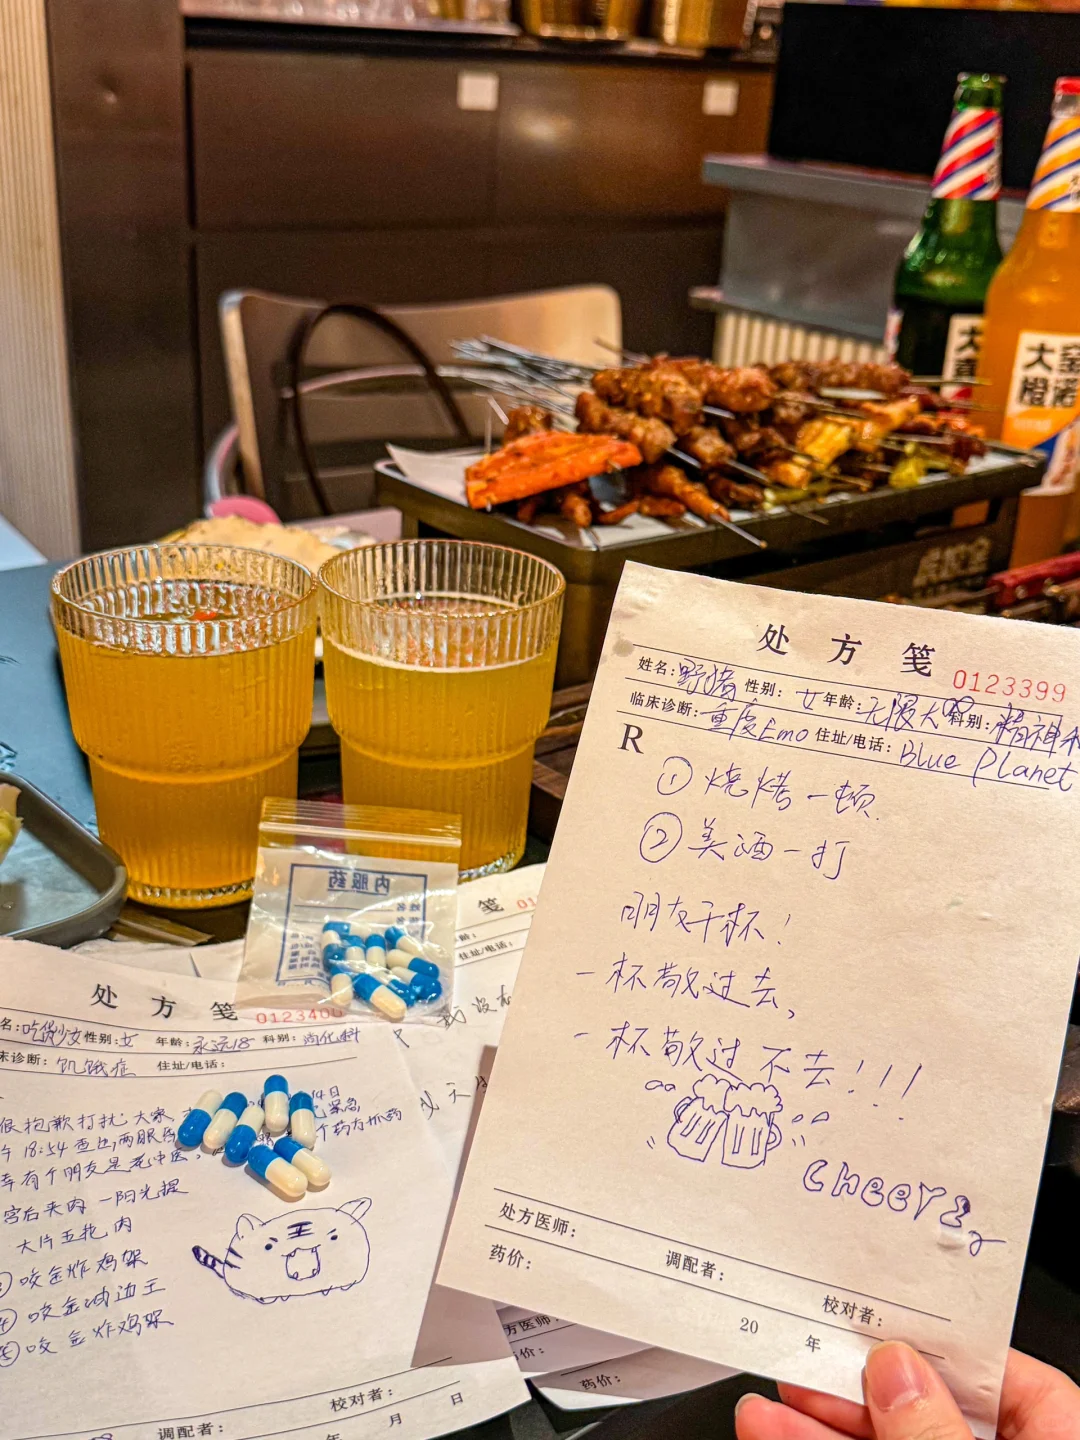 大
橙
窑
诺
处方笺
0123399
姓名：野猪 性别：女 年龄：无限大 科别：精神科
临床诊断：重度Emo 住址/电话：Blue Planet
R
① 烧烤一顿
② 美酒一打
朋友干杯！
一杯敬过去，
一杯敬过不去！！！
Cheers
处方医师：
药价：
调配者：
校对者：
20 年
内服药
处方笺
0123400
名：吃货少女 性别：女 年龄：永远18 科别：消化科
床诊断：饥饿症 住址/电话：
很抱歉打扰大家，
14日
18:54
有个朋友是老中医，
个药方抓药
宫后夹肉一阳光提
大片五花肉
咬金炸鸡架
④ 咬金油边王
⑤ 咬金炸鸡架
王
校对者：
调配者：
年 月 日
笺
01
住址/电话：
方医师：
价：
药价：